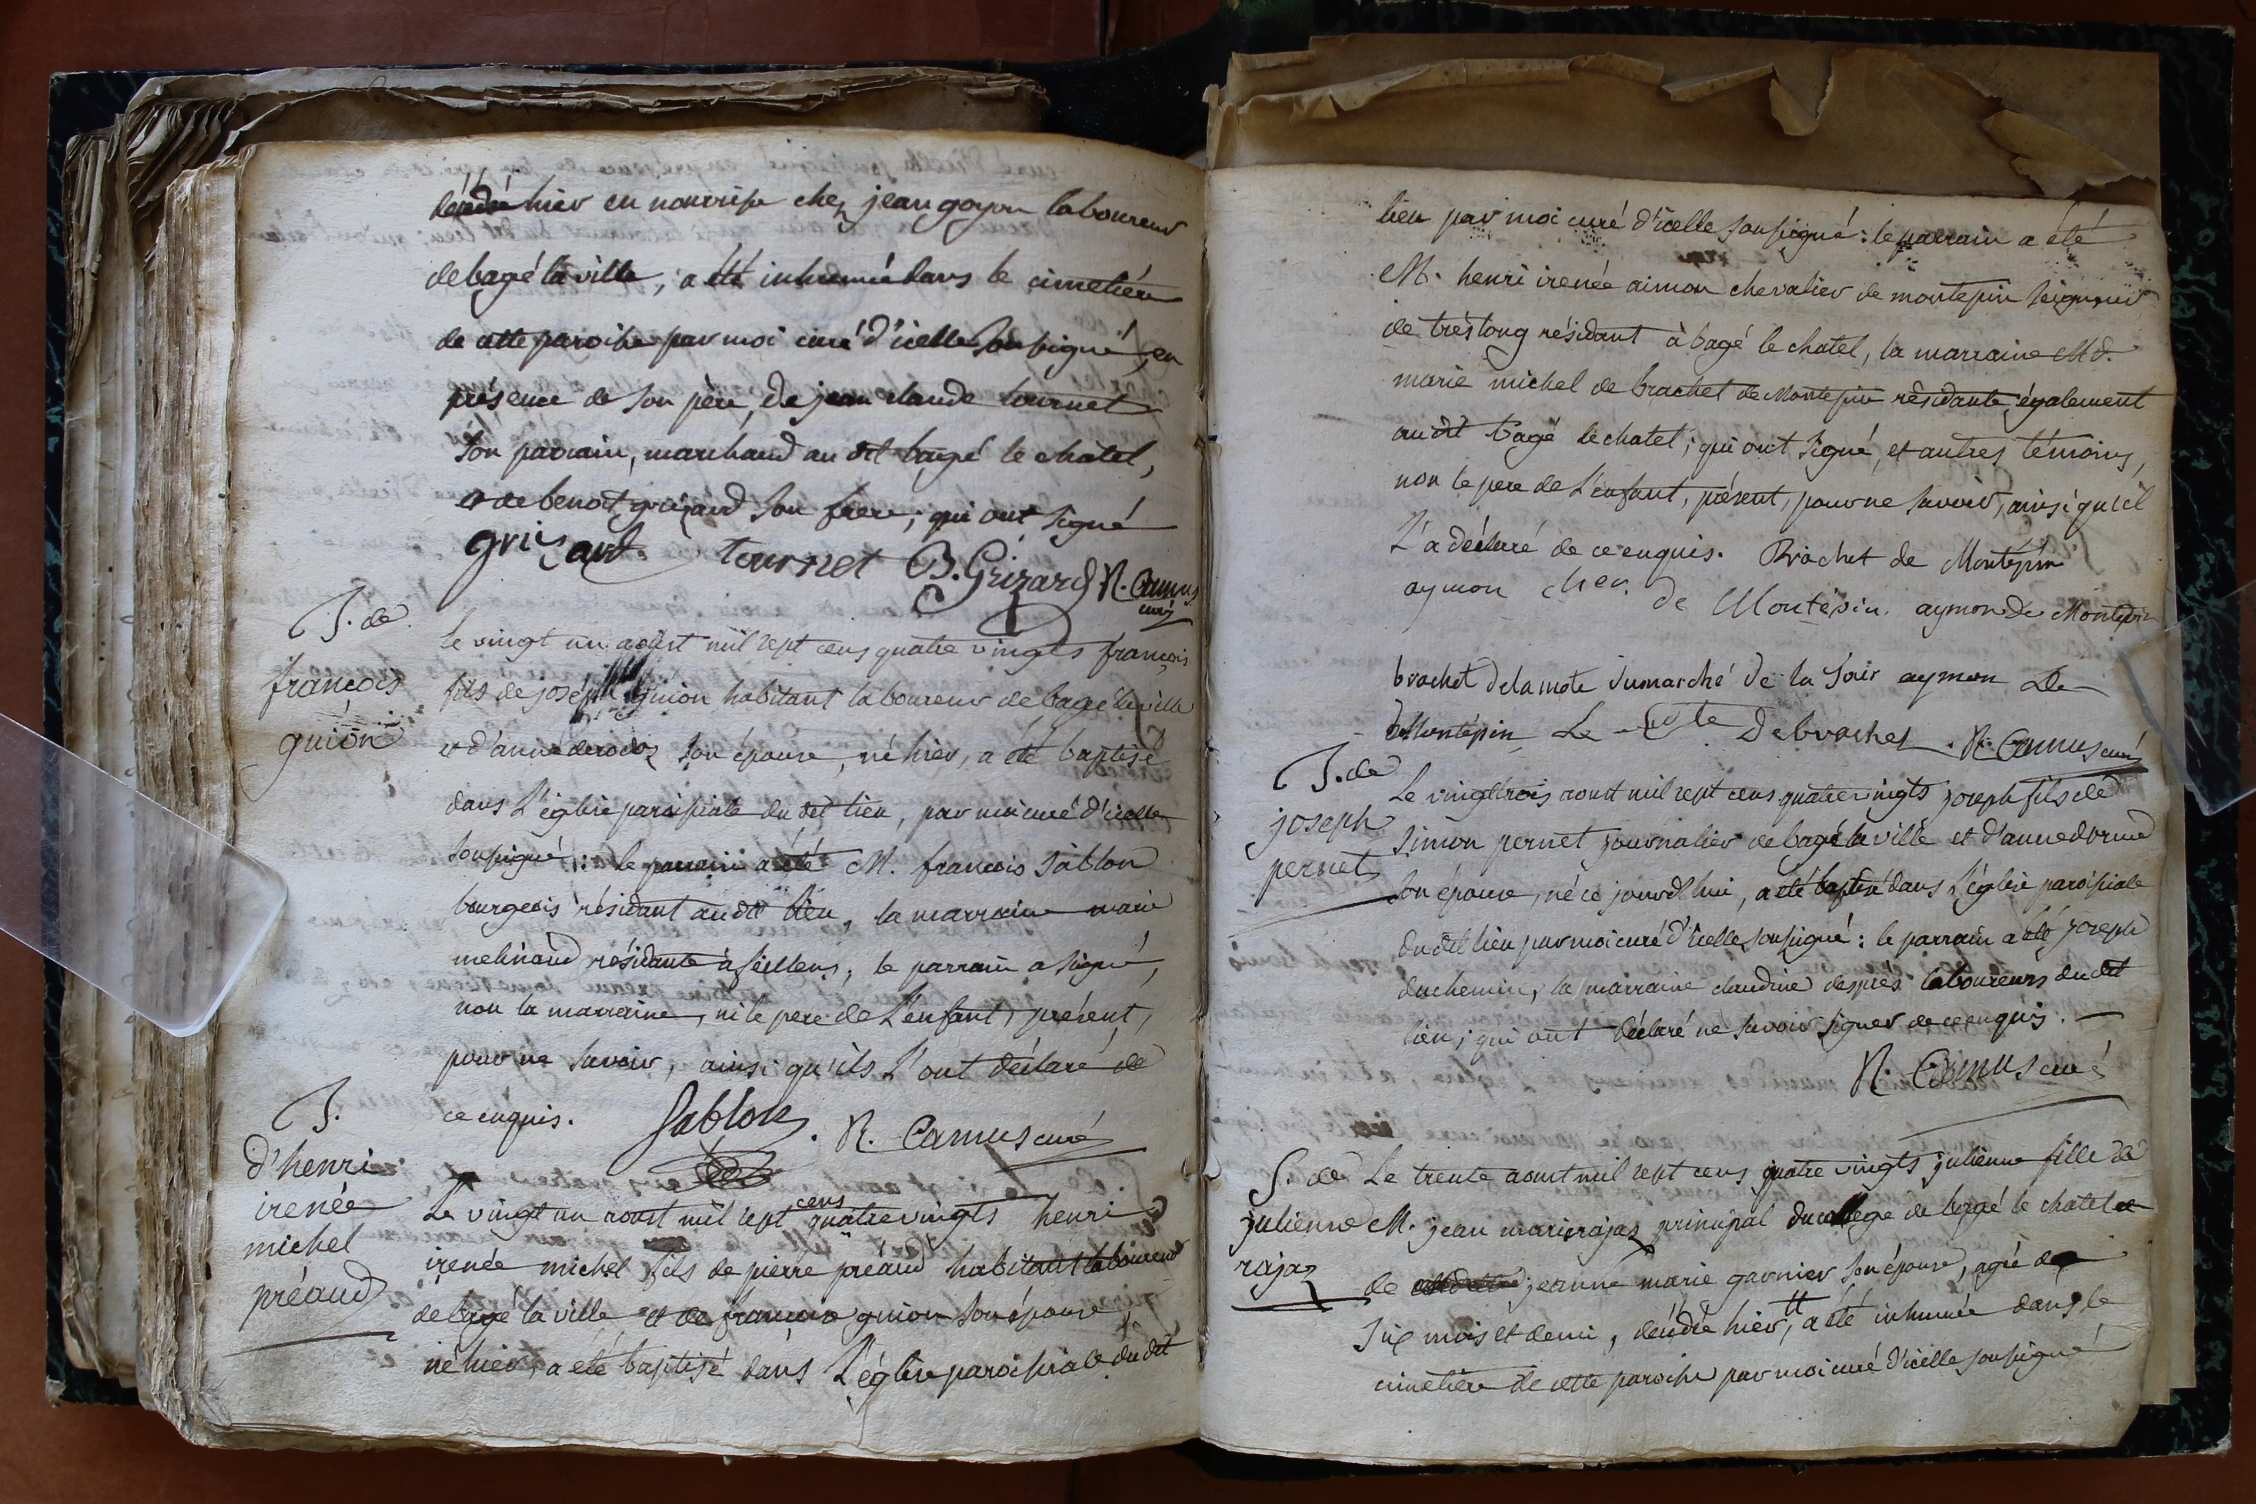 décédé hier en nourrisse chez jean goyon laboureur
de bagé la ville, a été inhumé dans le cimetière
de cette paroisse par moi curé d'icelle soussigné, en
présence de son père, de jean claude tournet
son parrain, marchand au dit baugé le châtel,
et de benoit grizard son frere, qui ont signé
grizard tournet B. Grizard R. Camus
curé
B. de
françois
guion
le vingt un aoust mil sept cens quatre vingts françois
fils de joseph guion habitant laboureur de bagé la ville
et d'anne son épouse, né hier, a été baptisé
dans l'église paroissiale du dit lieu, par moi curé d'icelle
soussigné: le parrain a été M. françois sablon
bourgeois résidant au dit lieu, la marraine marie
melinand résidante à feillens; le parrain a signé,
non la marraine, ni le pere de l'enfant, présent,
pour ne savoir, ainsi qu'ils l'ont déclaré de
ce enquis. Sablon. R. Camus curé
B.
d'henri
irenée
michel
préaud
Le vingt un aoust mil sept cens quatre vingts henri
irenée michel fils de pierre préaud habitant laboureur
de bagé la ville et de françoise guion son épouse,
né hier, a été baptisé dans l'église paroissiale du dit
lieu par moi curé d'icelle soussigné: le parrain a été
M. henri irenée aimon chevalier de montepin seigneur
de tréslong résidant à bagé le chatel, la marraine Md.
marie michel de brachet de Montepin résidante également
au dit bagé le chatel; qui ont signé, et autres témoins,
non le pere de l'enfant, présent, pour ne savoir, ainsi qu'il
l'a déclaré de ce enquis. Brachet de Montépin
aymon cher. de Montepin. aymon de Montepin
brachet delamote dumarché de la aymon de
Montépin Le Cte Debrachet. R. Camus curé
B. de
joseph
pernet
Le vingt trois aoust mil sept cens quatre vingts joseph fils de
simon pernet journalier de bagé la ville et d'anne
son épouse, né ce jourd'hui, a été baptisé dans l'église paroissiale
du dit lieu par moi curé d'icelle soussigné: le parrain a été joseph
duchemin, la marraine claudine desprès laboureurs du dit
lieu; qui ont déclaré ne savoir signer de ce enquis.
R. Camus curé
S. de
julienne
rajaz
Le trente aoust mil sept cens quatre vingts julienne fille de
M. jean marie rajaz principal du collège de bagé le chatel et
de jeanne marie garnier son épouse, agée de
six mois et demi, décédée hier, a été inhumée dans le
cimetière de cette paroisse par moi curé d'icelle soussigné